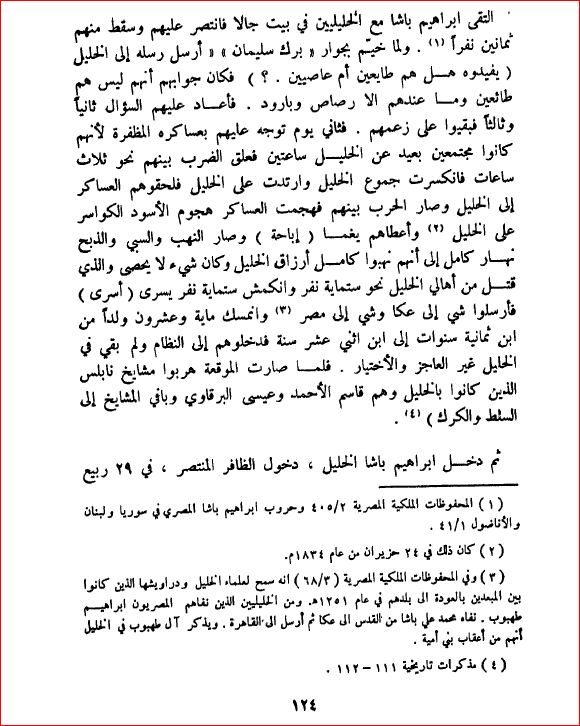 التقى ابراهيم باشا مع الخليليين في بيت جالا فانتصر عليهم وسقط منهم
ثمانين نفراً (١) . ولما خيّم بجوار « برك سليمان » « أرسل رسله إلى الخليل
( يفيدوه هل هم طايعين أم عاصيين . ؟ ) فكان جوابهم أنهم ليس هم
طائعين وما عندهم الا رصاص وبارود . فأعاد عليهم السؤال ثانياً
وثالثاً فبقيوا على زعمهم . فثاني يوم توجه عليهم بعساكره المظفرة لأنهم
كانوا مجتمعين بعيد عن الخليل ساعتين فعلق الضرب بينهم نحو ثلاث
ساعات فانكسرت جموع الخليل وارتدت على الخليل فلحقوهم العساكر
إلى الخليل وصار الحرب بينهم فهجمت العساكر هجوم الأسود الكواسر
على الخليل (٢) وأعطاهم يغما ( إباحة ) وصار النهب والسبي والذبح
نهار كامل إلى أنهم نهبوا كامل أرزاق الخليل وكان شيء لا يحصى والذي
قتل من أهالي الخليل نحو ستماية نفر وانكمش ستماية نفر يسرى ( أسرى )
فأرسلوا شي إلى عكا وشي إلى مصر (٣) وانمسك ماية وعشرون ولداً من
ابن ثمانية سنوات إلى ابن اثني عشر سنة فدخلوهم إلى النظام ولم بقي في
الخليل غير العاجز والأختيار . فلما صارت الموقعة هربوا مشايخ نابلس
الذين كانوا بالخليل وهم قاسم الأحمد وعيسى البرقاوي وباقي المشايخ إلى
السلط والكرك ) (٤) .
ثم دخل ابراهيم باشا الخليل ، دخول الظافر المنتصر ، في ٢٩ ربيع
( ١ ) المحفوظات الملكية المصرية ٤٠٥/٢ وحروب ابراهيم باشا المصري في سوريا ولبنان
والأناضول ٤١/١ .
( ٢ ) كان ذلك في ٢٤ حزيران من عام ١٨٣٤م.
( ٣ ) وفي المحفوظات الملكية المصرية ( ٦٨/٣ ) انه سمح لعلماء الخليل ودراويشها الذين كانوا
بين المبعدين بالعودة الى بلدهم في عام ١٢٥١هـ. ومن الخليليين الذين نفاهم المصريون ابراهيم
طهبوب . نفاه محمد علي باشا من القدس الى عكا ثم أرسل الى القاهرة . ويذكر آل طهبوب في الخليل
أنهم من أعقاب بني أمية .
( ٤ ) مذكرات تاريخية ١١١ – ١١٢ .
١٢٤